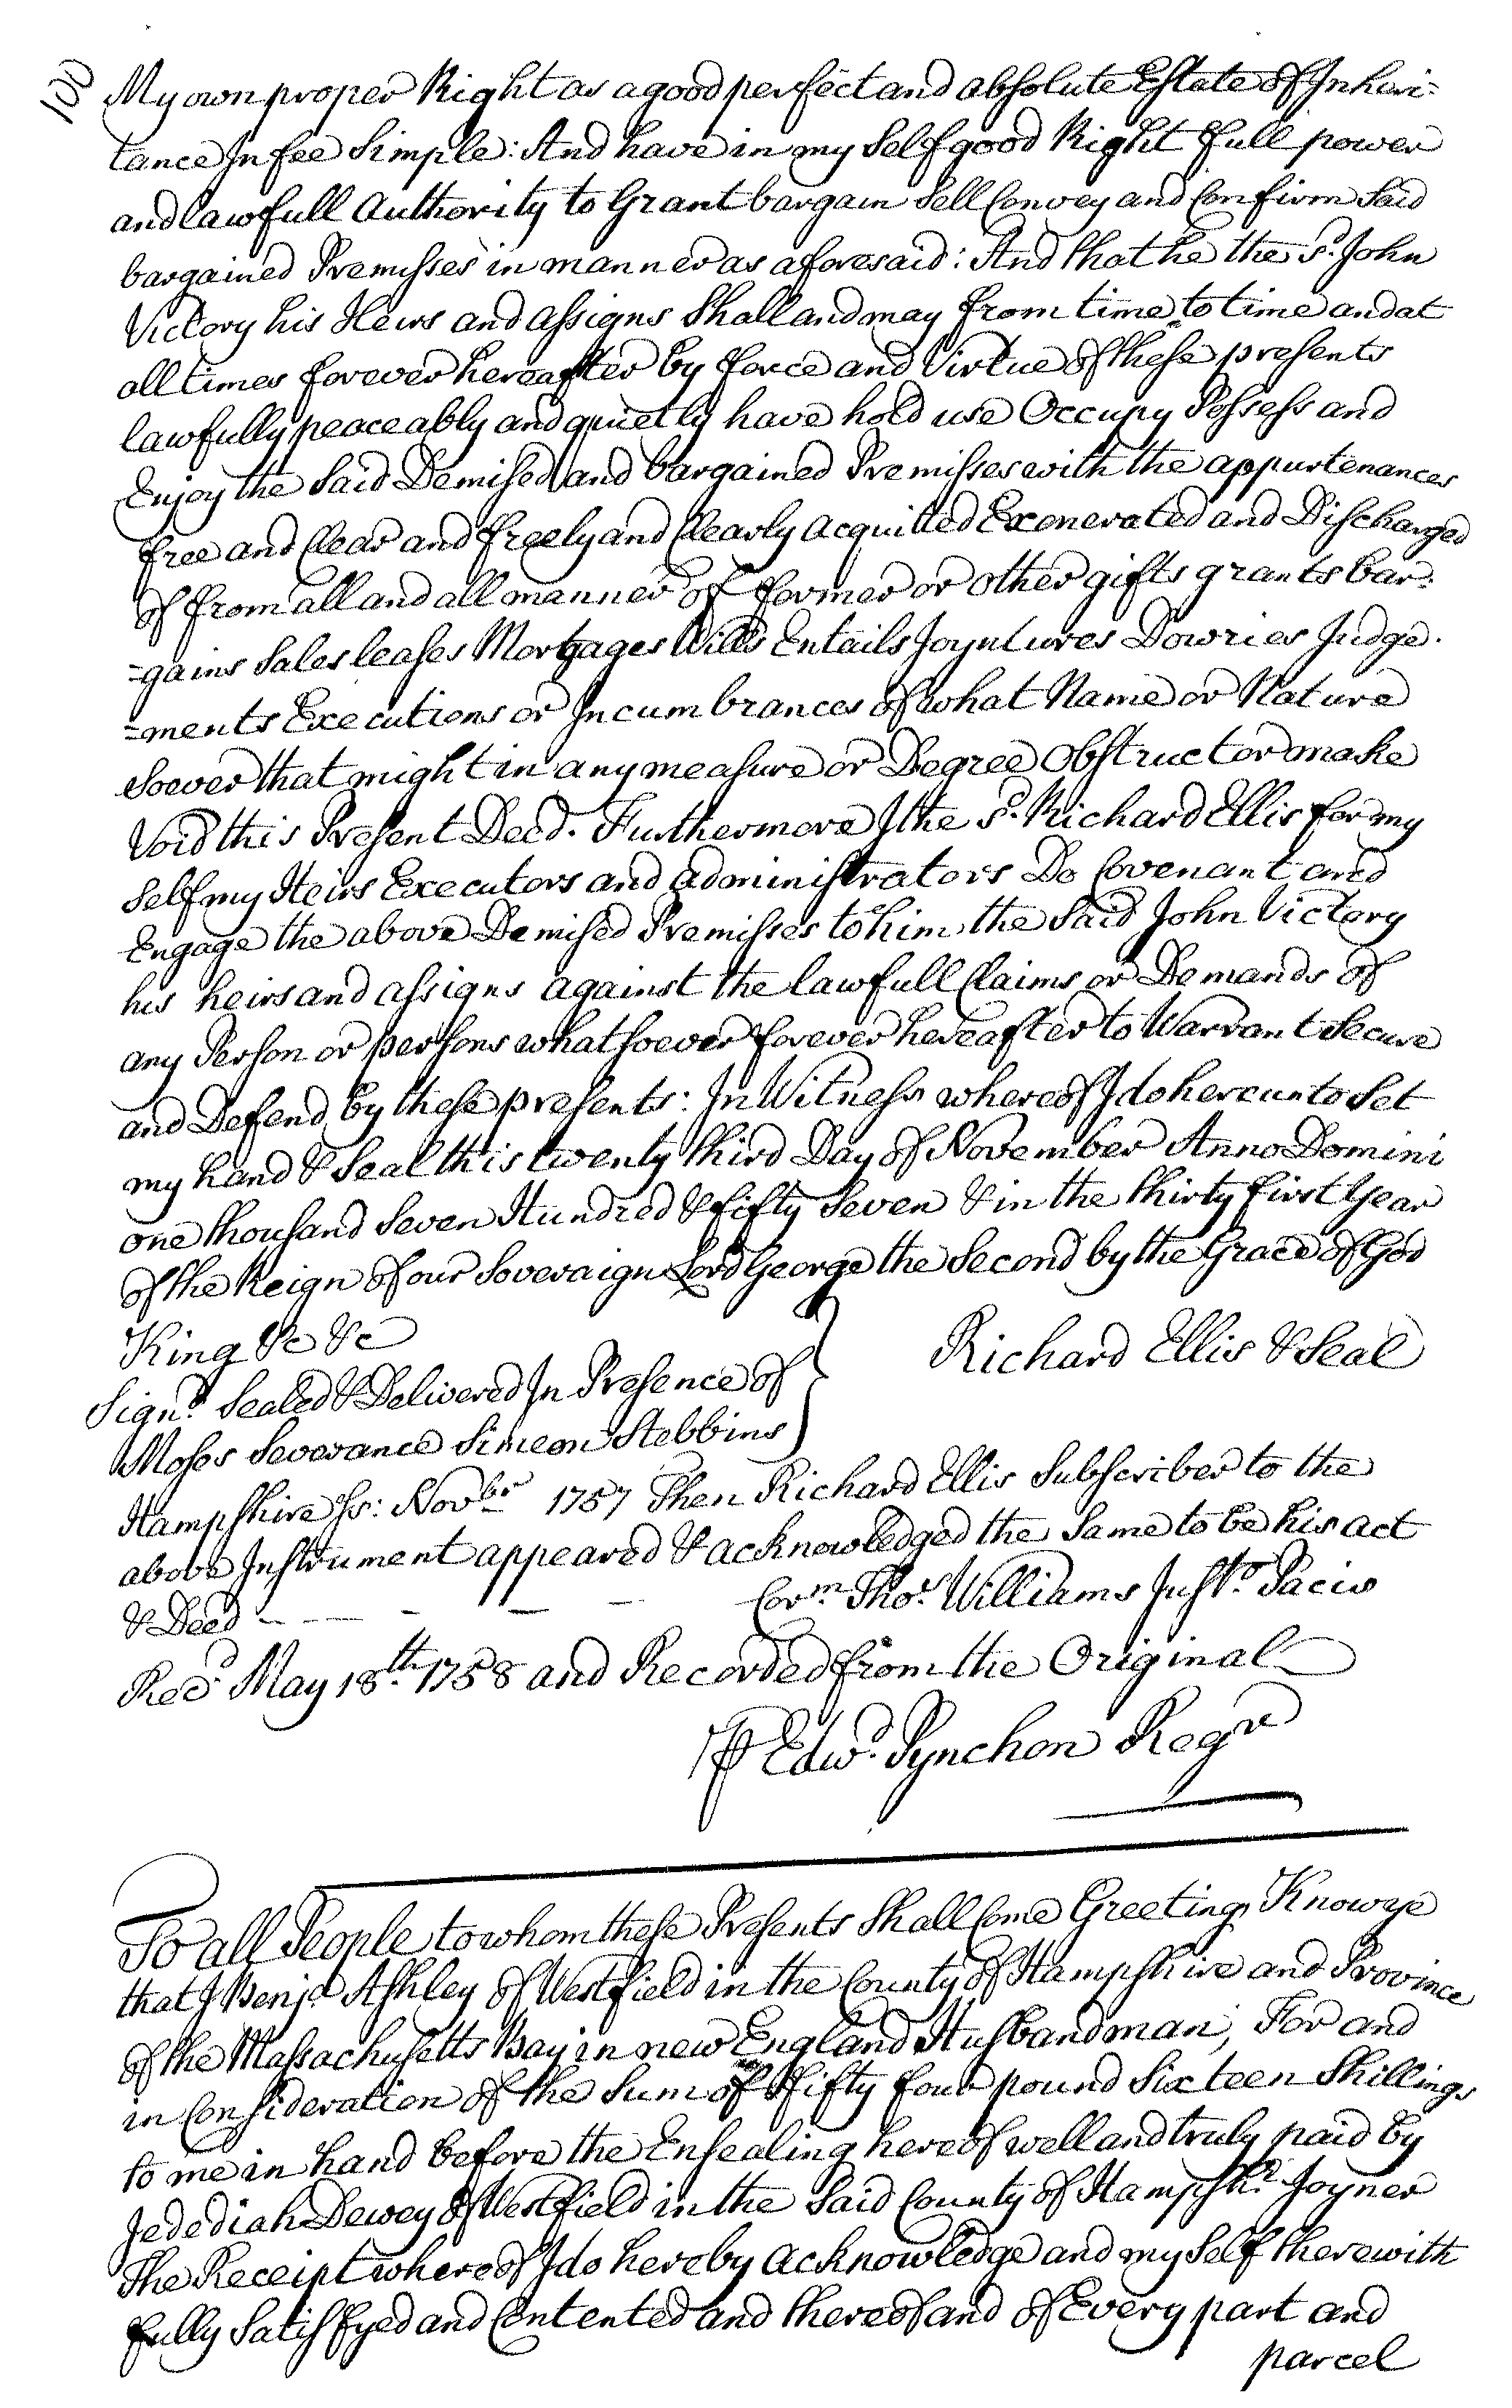 100
My own proper Right as a good perfect and absolute Estate of Inheri-
tance In fee Simple: And have in my Self good Right full power
and lawfull Authority to Grant bargain Sell Convey and Confirm Said
bargained Premisses in manner as aforesaid: And that he the sd. John
Victory his Heirs and assigns Shall and may from time to time and at
all times forever hereafter by force and Virtue of these presents
lawfully peaceably and quietly have hold use Occupy Possess and
Enjoy the Said Demised and bargained Premisses with the appurtenances
free and Clear and freely and Clearly acquitted Exonerated and Discharged
of from all and all manner of former or other gifts grants bar-
=gains Sales leases Mortgages Wills Entails Joyntures Dowries Judge-
=ments Executions or Incumbrances of what Name or Nature
soever that might in any measure or Degree Obstruct or make
Void this Present Deed. Furthermore I the sd. Richard Ellis for my
Self my Heirs Executors and administrators Do Covenant and
Engage the above Demised Premisses to him the Said John Victory
his heirs and assigns against the lawfull Claims or Demands of
any Person or persons whatsoever forever hereafter to Warrant Secure
and Defend by these presents: In Witness whereof I do hereunto Set
my hand & Seal this twenty third Day of November Anno Domini
one thousand Seven Hundred & fifty Seven & in the thirty first Year
of the Reign of our Soveraign Lord George the Second by the Grace of God
King &c &c
Richard Ellis & Seal
Signd. Sealed & Delivered In Presence of
Moses Severance Simeon Stebbins
Hampshire ss: Novbr 1757 Then Richard Ellis Subscriber to the
above Instrument appeared & acknowledged the Same to be his act
& Deed - - - - - - Corm. Thos. Williams Justo. Pacis
Recd. May 18th. 1758 and Recorded from the Original
⅌ Edwd. Pynchon Regr
To all People to whom these Presents Shall Come Greeting, Know ye
that I Benja. Ashley of Westfield in the County of Hampshire and Province
of the Massachusetts Bay in new England Husbandman, For and
in Consideration of the Sum of fifty four pound Sixteen Shillings
to me in hand before the Ensealing hereof well and truly paid by
Jedediah Dewey of Westfield in the Said County of Hampshr. Joyner
The Receipt whereof I do hereby acknowledge and my Self therewith
fully Satisfyed and Contented and thereof and of Every part and
parcel